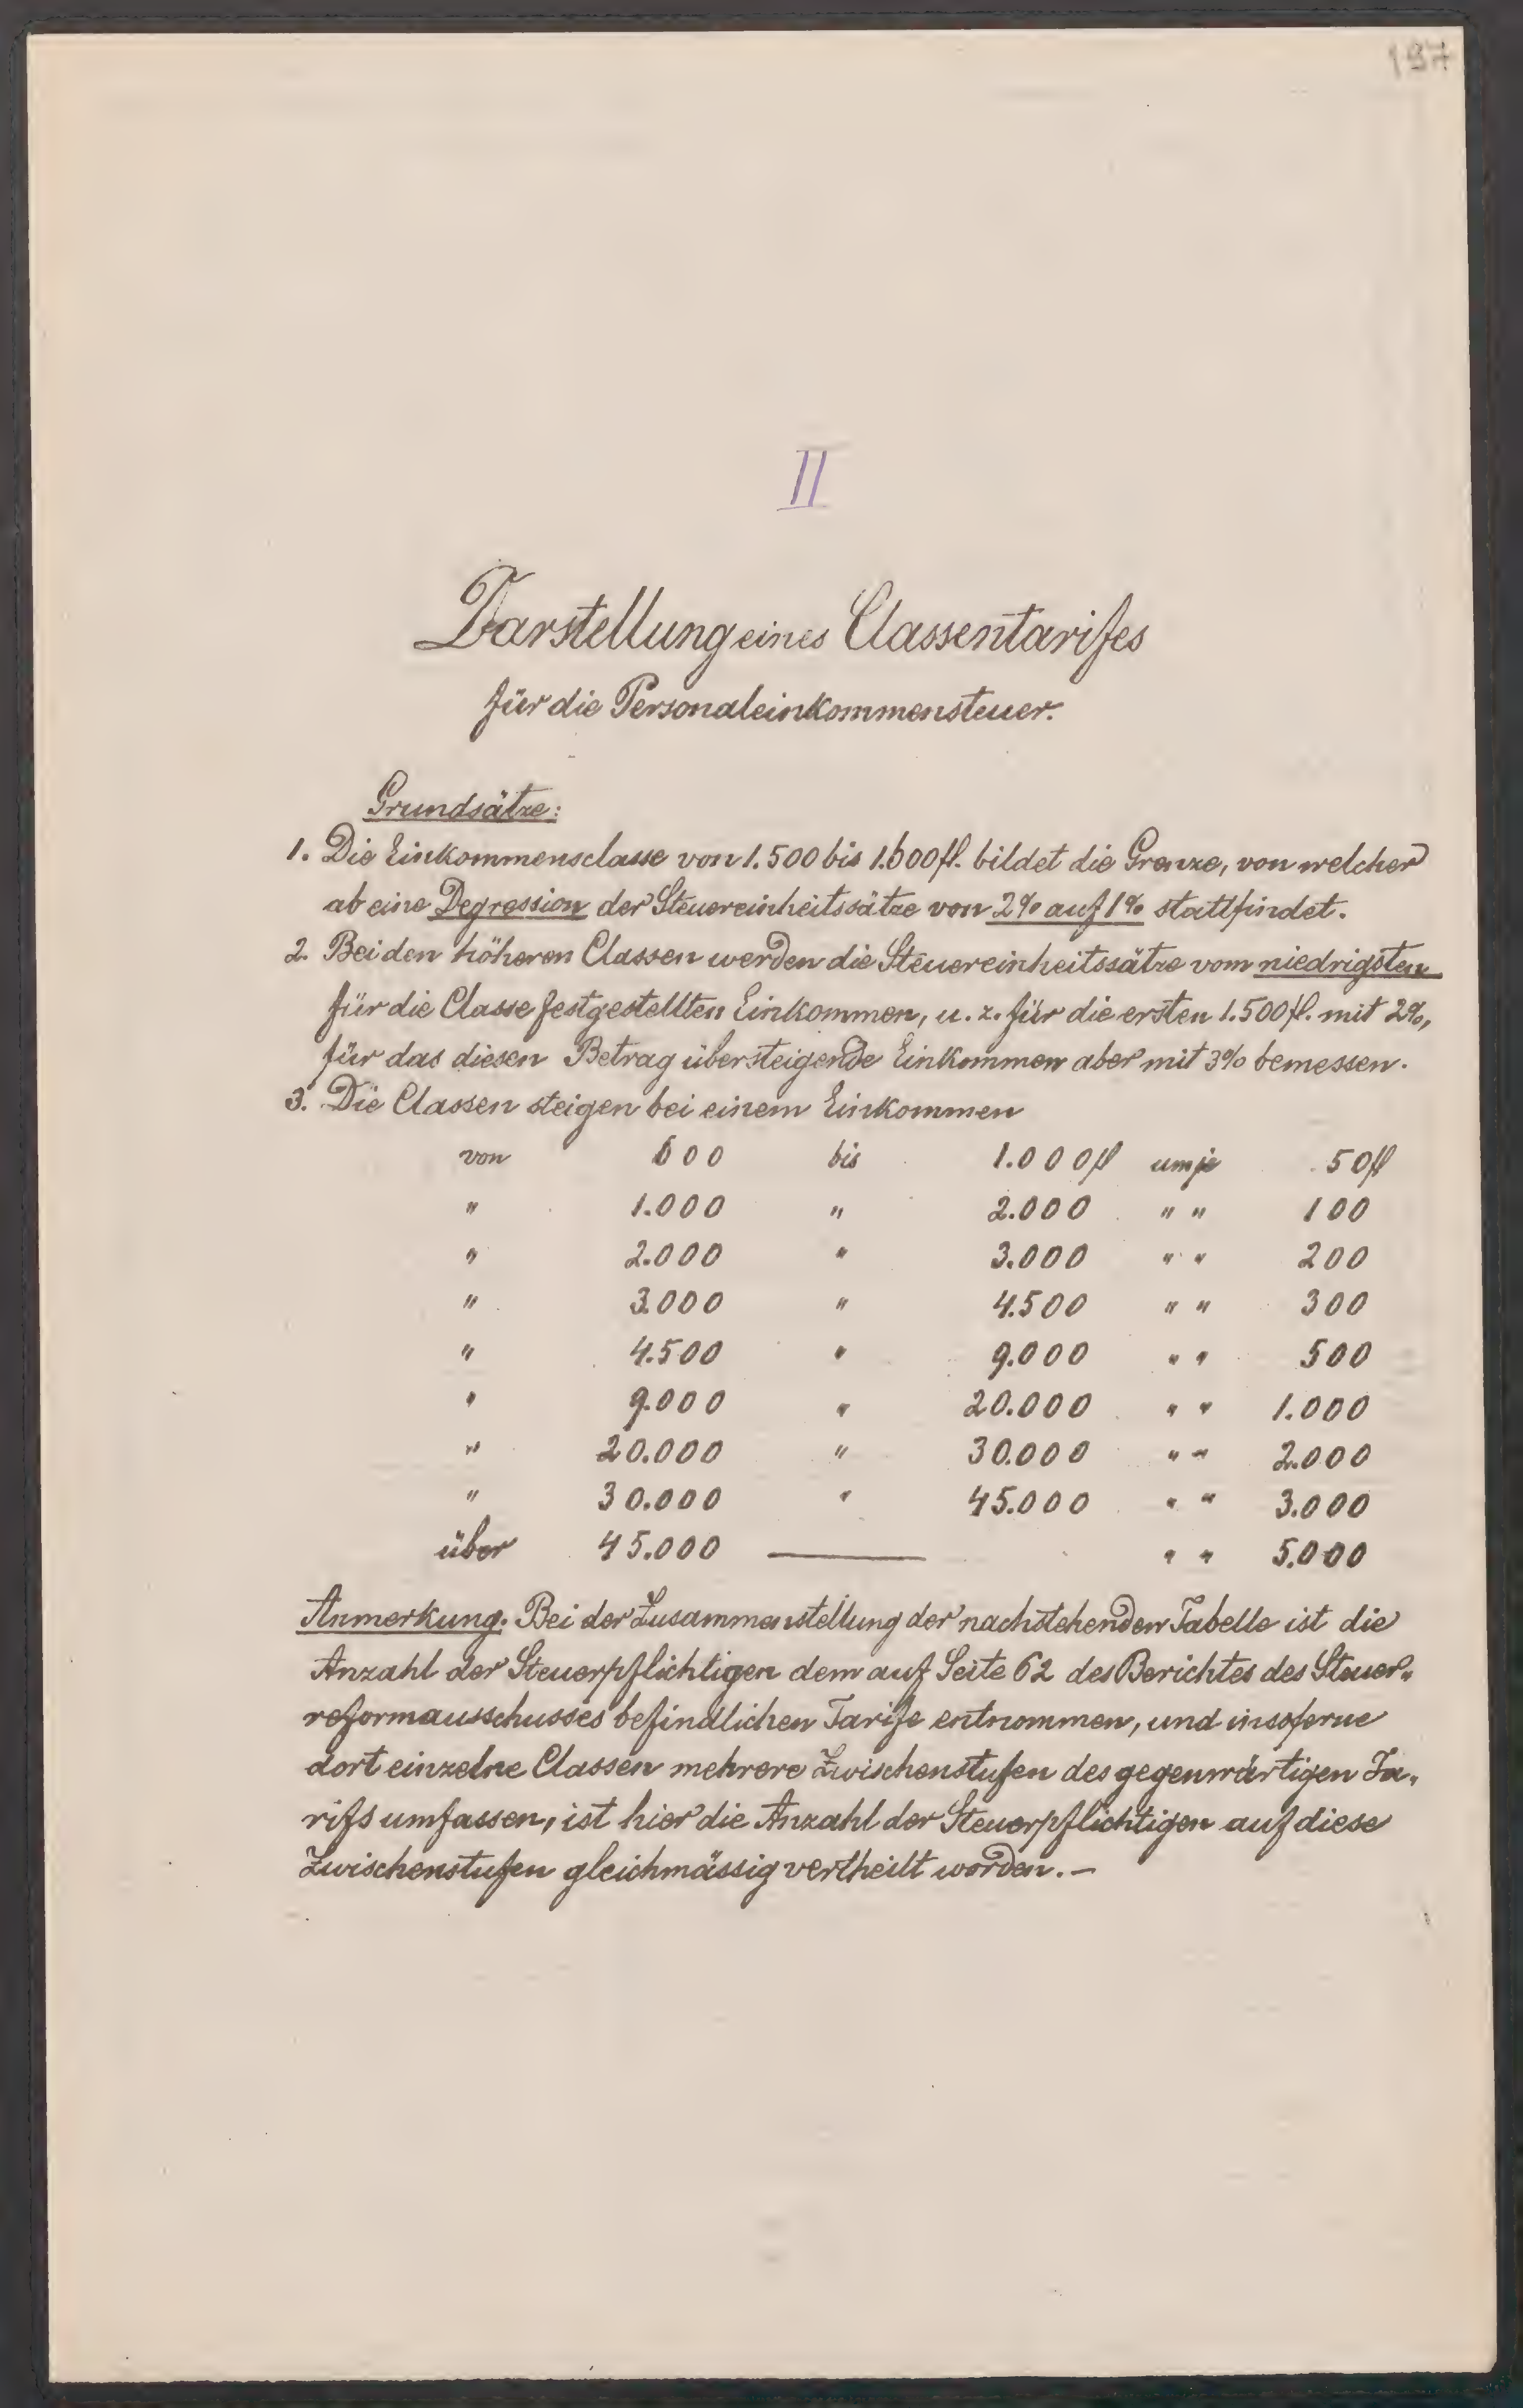 197
II
Darstellung eines Classentarifes
für die Personaleinkommensteuer.
Grundsätze:
1. Die Einkommensclasse von 1.500 bis 1.600 fl. bildet die Grenze, von welcher
ab eine Degression der Steuereinheitssätze von 2% auf 1% stattfindet.
2. Bei den höheren Classen werden die Steuereinheitssätze vom niedrigsten
für die Classe festgestellten Einkommen, u. z. für die ersten 1.500 fl. mit 2%,
für das diesen Betrag übersteigende Einkommen aber mit 3% bemessen.
3. Die Classen steigen bei einem Einkommen
von 600 bis 1.000 fl um je 50 fl
" 1.000 " 2.000 " " 100
" 2.000 " 3.000 " " 200
" 3.000 " 4.500 " " 300
" 4.500 " 9.000 " " 500
" 9.000 " 20.000 " " 1.000
" 20.000 " 30.000 " " 2.000
" 30.000 " 45.000 " " 3.000
über 45.000 — " " 5.000
Anmerkung. Bei der Zusammenstellung der nachstehenden Tabelle ist die
Anzahl der Steuerpflichtigen dem auf Seite 62 des Berichtes des Steuer„
reformausschusses befindlichen Tarife entnommen, und insoferne
dort einzelne Classen mehrere Zwischenstufen des gegenwärtigen Ta„
rifs umfassen, ist hier die Anzahl der Steuerpflichtigen auf diese
Zwischenstufen gleichmässig vertheilt worden. —